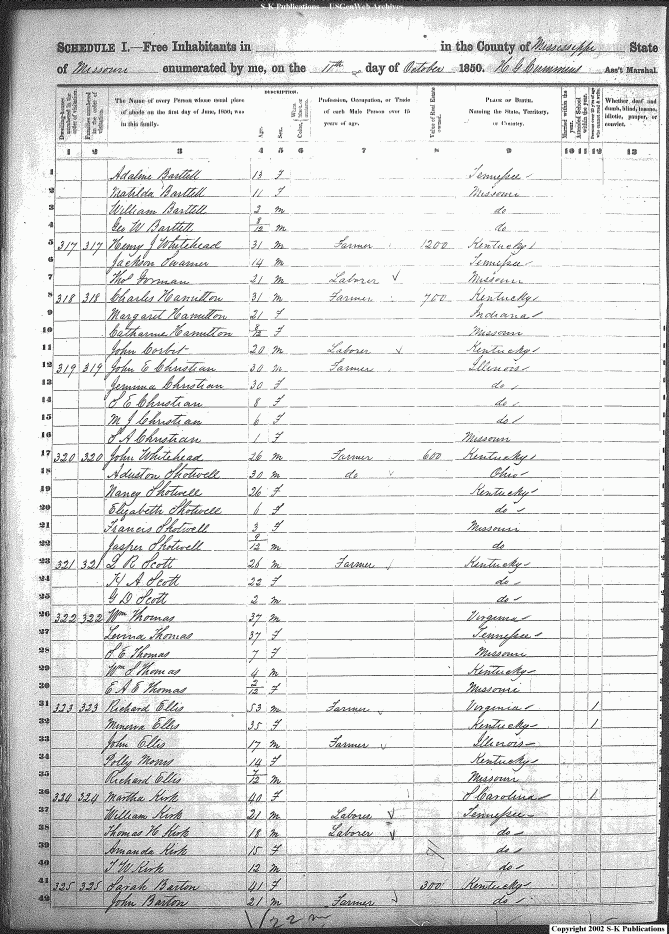 S-K Publications – USGenWeb Archives
SCHEDULE I.—Free Inhabitants in in the County of Mississippi State
of Missouri enumerated by me, on the 11th day of October 1850. H G Cummins Ass't Marshal.
DESCRIPTION.
Dwelling-houses numbered in the order of visitation. Families numbered in the order of visitation. The Name of every Person whose usual place of abode on the first day of June, 1850, was in this family. Age. Sex. Color, Profession, Occupation, or Trade of each Male Person over 15 years of age. Value of Real Estate PLACE OF BIRTH, Naming the State, Territory, or Country. Married within the year. Attended School within the year. Whether deaf and dumb, blind, insane, idiotic, pauper, or convict.
1 2 3 4 5 6 7 8 9 10 11 12 13
1 Adaline Bartell 13 F Tennessee
2 Matilda Bartell 11 F Missouri
3 William Bartell 2 m do
4 Geo W Bartell 8/12 m do
5 317 317 Henry J Whitehead 31 m Farmer 1200 Kentucky
6 Jackson Swamer 14 m Tennessee
7 Thos Gorman 21 m Laborer Missouri
8 318 318 Charles Hamilton 31 m Farmer 700 Kentucky
9 Margaret Hamilton 21 F Indiana
10 Catharine Hamilton 8/12 F Missouri
11 John Corbit 20 m Laborer Kentucky
12 319 319 John E Christian 30 m Farmer Illinois
13 Jemima Christian 30 F do
14 S E Christian 8 F do
15 M J Christian 6 F do
16 S A Christian 1 F Missouri
17 320 320 John Whitehead 26 m Farmer 600 Kentucky
18 Aduston Shotwell 30 m do Ohio
19 Nancy Shotwell 26 F Kentucky
20 Elizabeth Shotwell 6 F do
21 Francis Shotwell 3 F Missouri
22 Jasper Shotwell 9/12 m do
23 321 321 L R Scott 26 m Farmer Kentucky
24 H A Scott 22 F do
25 G D Scott 2 m do
26 322 322 Wm Thomas 37 m Virginia
27 Levina Thomas 37 F Tennessee
28 S E Thomas 7 F Missouri
29 Wm S Thomas 4 m Kentucky
30 E A E Thomas 2/12 F Missouri
31 323 323 Richard Ellis 53 m Farmer Virginia 1
32 Minerva Ellis 35 F Kentucky 1
33 John Ellis 17 m Farmer Illinois
34 Polly Morris 14 F Kentucky
35 Richard Ellis 7/12 m Missouri
36 324 324 Martha Kirk 40 F S Carolina 1
37 William Kirk 21 m Laborer Tennessee
38 Thomas H Kirk 18 m Laborer do
39 Amanda Kirk 15 F do
40 T W Kirk 12 m do
41 325 325 Sarah Barton 41 F 300 Kentucky
42 John Barton 21 m Farmer do
22 m
Copyright 2002 S-K Publications